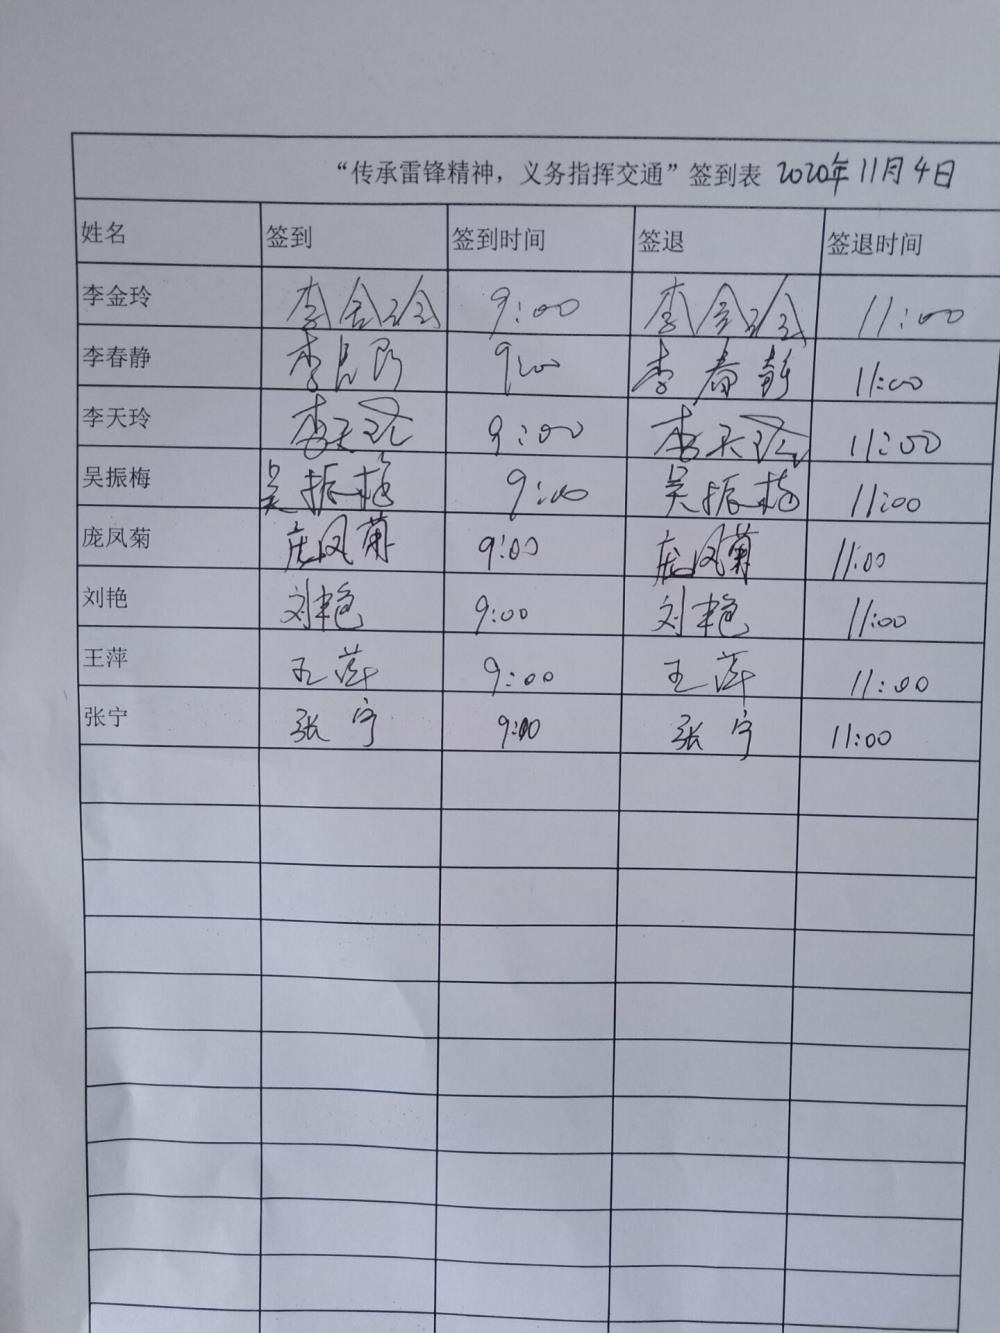 “传承雷锋精神，义务指挥交通”签到表 2020年11月4日
姓名 签到 签到时间 签退 签退时间
李金玲 李金玲 9:00 李金玲 11:00
李春静 李 9:00 李春静 11:00
李天玲 李天玲 9:00 李天玲 11:00
吴振梅 吴振梅 9:00 吴振梅 11:00
庞凤菊 庞凤菊 9:00 庞凤菊 11:00
刘艳 刘艳 9:00 刘艳 11:00
王萍 王萍 9:00 王萍 11:00
张宁 张宁 9:00 张宁 11:00